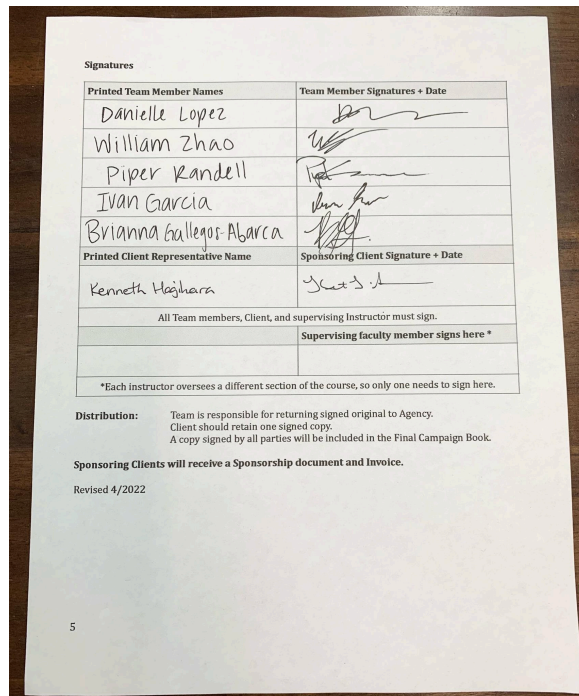 Signatures
Printed Team Member Names Team Member Signatures + Date
Danielle Lopez
William Zhao
Piper Randell
Ivan Garcia
Brianna Gallegos-Abarca
Printed Client Representative Name Sponsoring Client Signature + Date
Kenneth Hagihara
All Team members, Client, and supervising Instructor must sign.
Supervising faculty member signs here *
*Each instructor oversees a different section of the course, so only one needs to sign here.
Distribution: Team is responsible for returning signed original to Agency.
Client should retain one signed copy.
A copy signed by all parties will be included in the Final Campaign Book.
Sponsoring Clients will receive a Sponsorship document and Invoice.
Revised 4/2022
5